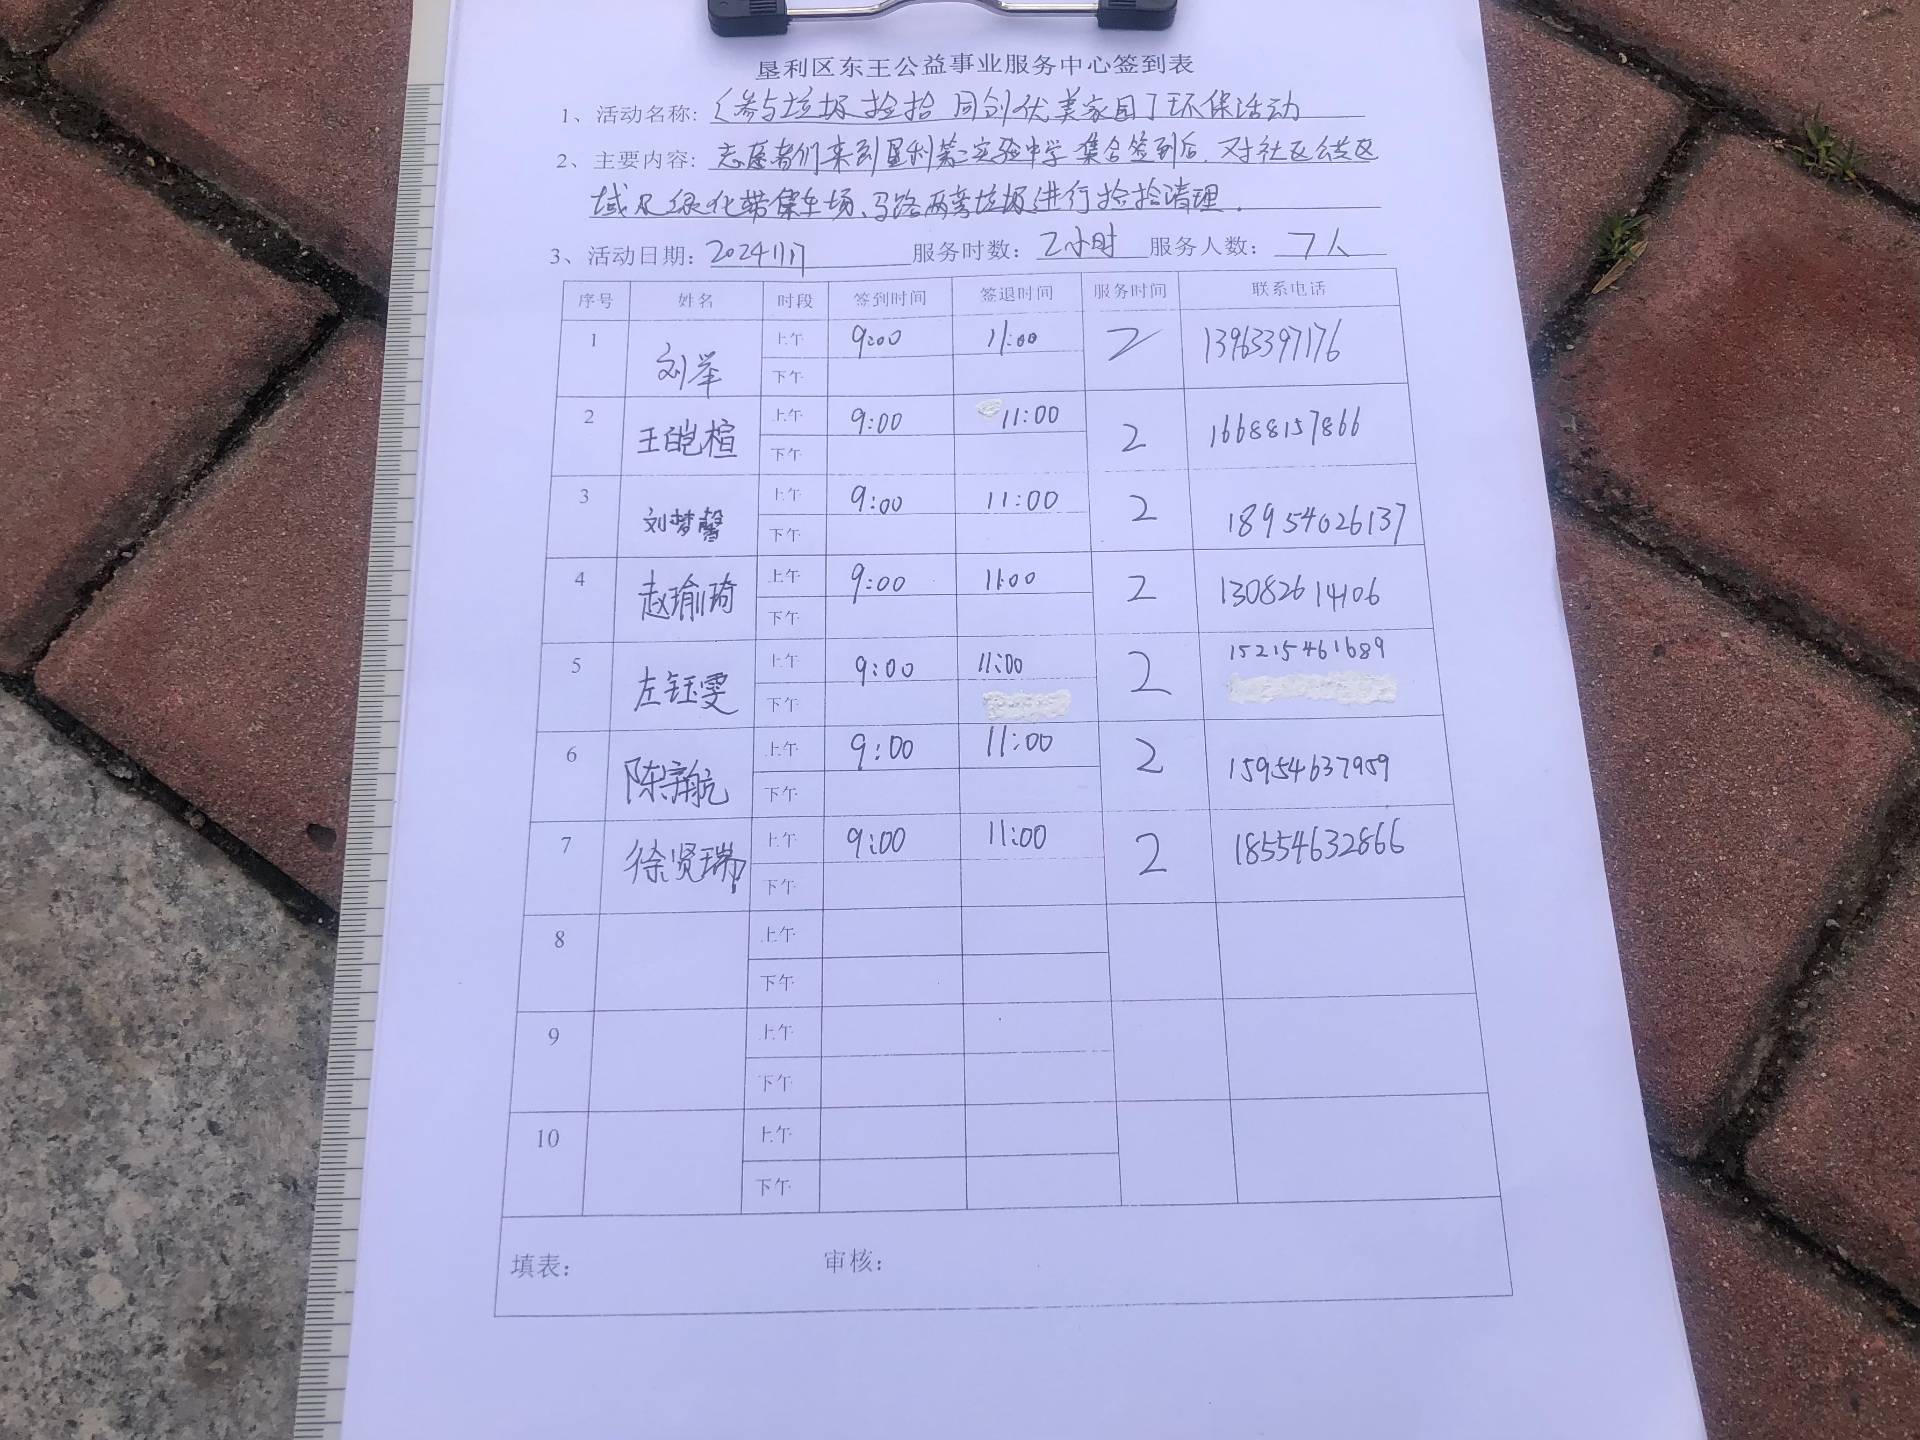 垦利区东王公益事业服务中心签到表
1、活动名称: 《参与垃圾捡拾 同创优美家园》环保活动
2、主要内容: 志愿者们来到垦利第二实验中学集合签到后,对社区公共区
域及绿化带停车场、马路两旁垃圾进行捡拾清理.
3、活动日期: 2024 11 17 服务时数: 2小时 服务人数: 7人
序号 姓名 时段 签到时间 签退时间 服务时间 联系电话
1 刘举 上午 9:00 11:00 2 13963397176
下午
2 王皑楦 上午 9:00 11:00 2 16688157866
下午
3 刘梦馨 上午 9:00 11:00 2 18954026137
下午
4 赵瑜琦 上午 9:00 11:00 2 13082614106
下午
5 左钰雯 上午 9:00 11:00 2 15215461689
下午
6 陈航 上午 9:00 11:00 2 15954637959
下午
7 徐贤瑞 上午 9:00 11:00 2 18554632866
下午
8 上午
下午
9 上午
下午
10 上午
下午
填表: 审核: